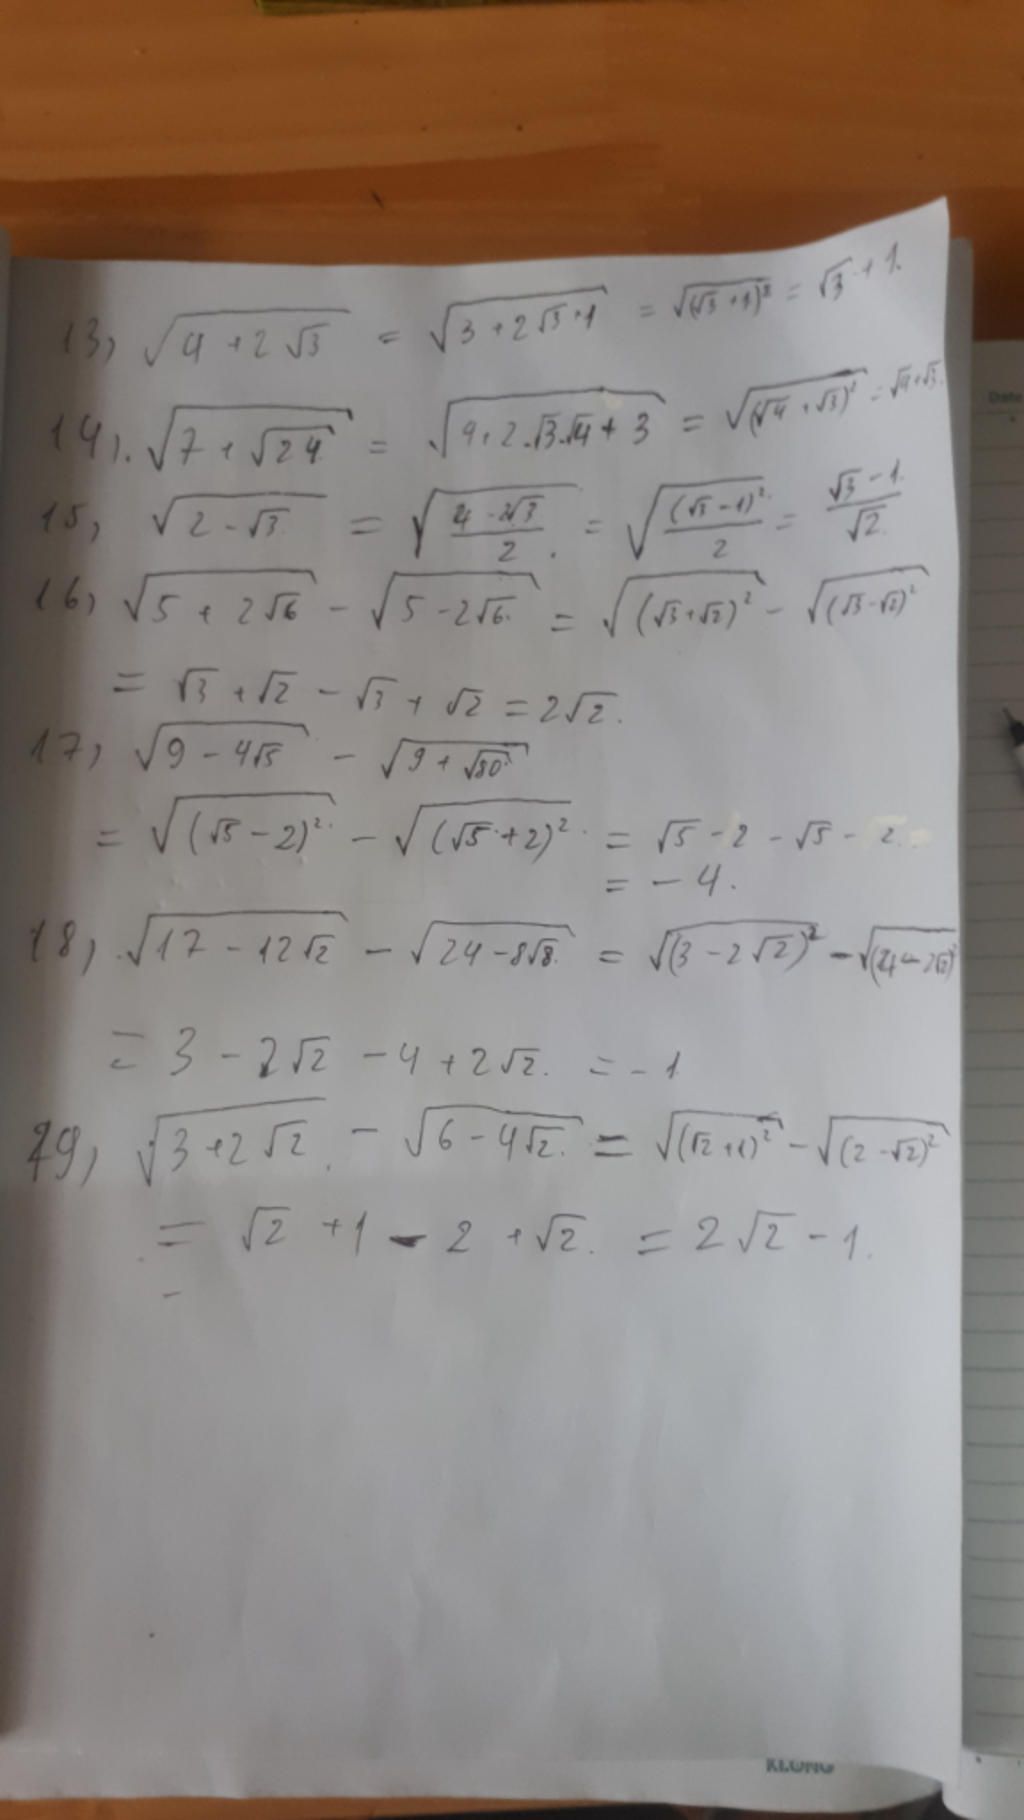 13, √(4 + 2√3) = √(3 + 2√3 + 1) = √((√3 + 1)²) = √3 + 1.
14). √(7 + √24) = √(4 + 2.√3.√4 + 3) = √((√4 + √3)²) = √4 + √3.
15, √(2 - √3) = √((4 - 2√3)/2) = √((√3 - 1)²/2) = (√3 - 1)/√2.
16, √(5 + 2√6) - √(5 - 2√6) = √((√3 + √2)²) - √((√3 - √2)²)
= √3 + √2 - √3 + √2 = 2√2.
17, √(9 - 4√5) - √(9 + √80)
= √((√5 - 2)²) - √((√5 + 2)²) = √5 - 2 - √5 - 2.
= - 4.
18, √(17 - 12√2) - √(24 - 8√8) = √((3 - 2√2)²) - √((4 - 2√2)²)
= 3 - 2√2 - 4 + 2√2. = - 1
19, √(3 + 2√2) - √(6 - 4√2) = √((√2 + 1)²) - √((2 - √2)²)
= √2 + 1 - 2 + √2. = 2√2 - 1.
Date
KLONG